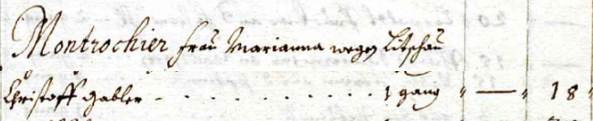 Montrochier Frau Marianna wegen Litschau
Christoff Gabler - . . . . . . . . . . . 1 gang " — " 18